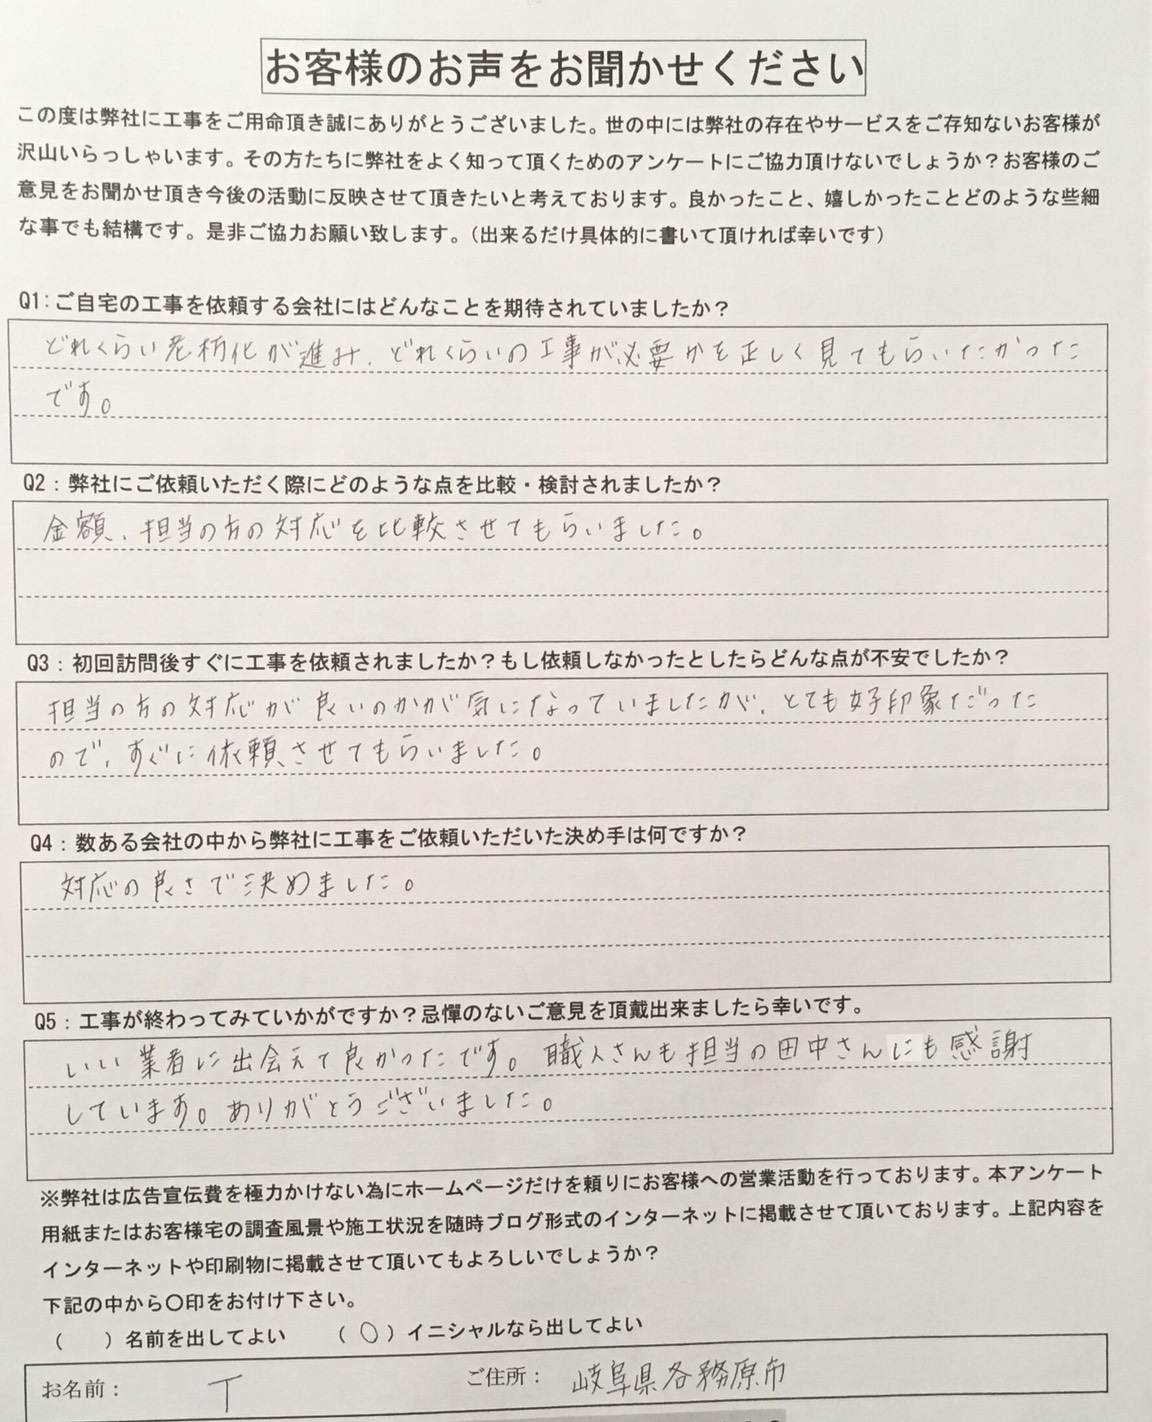 お客様のお声をお聞かせください
この度は弊社に工事をご用命頂き誠にありがとうございました。世の中には弊社の存在やサービスをご存知ないお客様が
沢山いらっしゃいます。その方たちに弊社をよく知って頂くためのアンケートにご協力頂けないでしょうか?お客様のご
意見をお聞かせ頂き今後の活動に反映させて頂きたいと考えております。良かったこと、嬉しかったことどのような些細
な事でも結構です。是非ご協力お願い致します。(出来るだけ具体的に書いて頂ければ幸いです)
Q1:ご自宅の工事を依頼する会社にはどんなことを期待されていましたか?
どれくらい老朽化が進み、どれくらいの工事が必要かを正しく見てもらいたかった
です。
Q2:弊社にご依頼いただく際にどのような点を比較・検討されましたか?
金額、担当の方の対応を比較させてもらいました。
Q3:初回訪問後すぐに工事を依頼されましたか?もし依頼しなかったとしたらどんな点が不安でしたか?
担当の方の対応が良いのかが気になっていましたが、とても好印象だった
ので、すぐに依頼させてもらいました。
Q4:数ある会社の中から弊社に工事をご依頼いただいた決め手は何ですか?
対応の良さで決めました。
Q5:工事が終わってみていかがですか?忌憚のないご意見を頂戴出来ましたら幸いです。
いい業者に出会えて良かったです。職人さんも担当の田中さんにも感謝
しています。ありがとうございました。
※弊社は広告宣伝費を極力かけない為にホームページだけを頼りにお客様への営業活動を行っております。本アンケート
用紙またはお客様宅の調査風景や施工状況を随時ブログ形式のインターネットに掲載させて頂いております。上記内容を
インターネットや印刷物に掲載させて頂いてもよろしいでしょうか?
下記の中から〇印をお付け下さい。
( )名前を出してよい (〇)イニシャルなら出してよい
お名前: T ご住所: 岐阜県各務原市